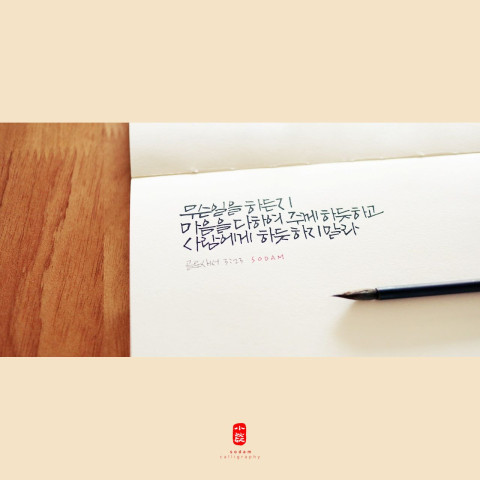 무슨일을 하든지
마음을 다하여 주께 하듯하고
사람에게 하듯하지말라
골로새서 3:23 SODAM
sodam
calligraphy